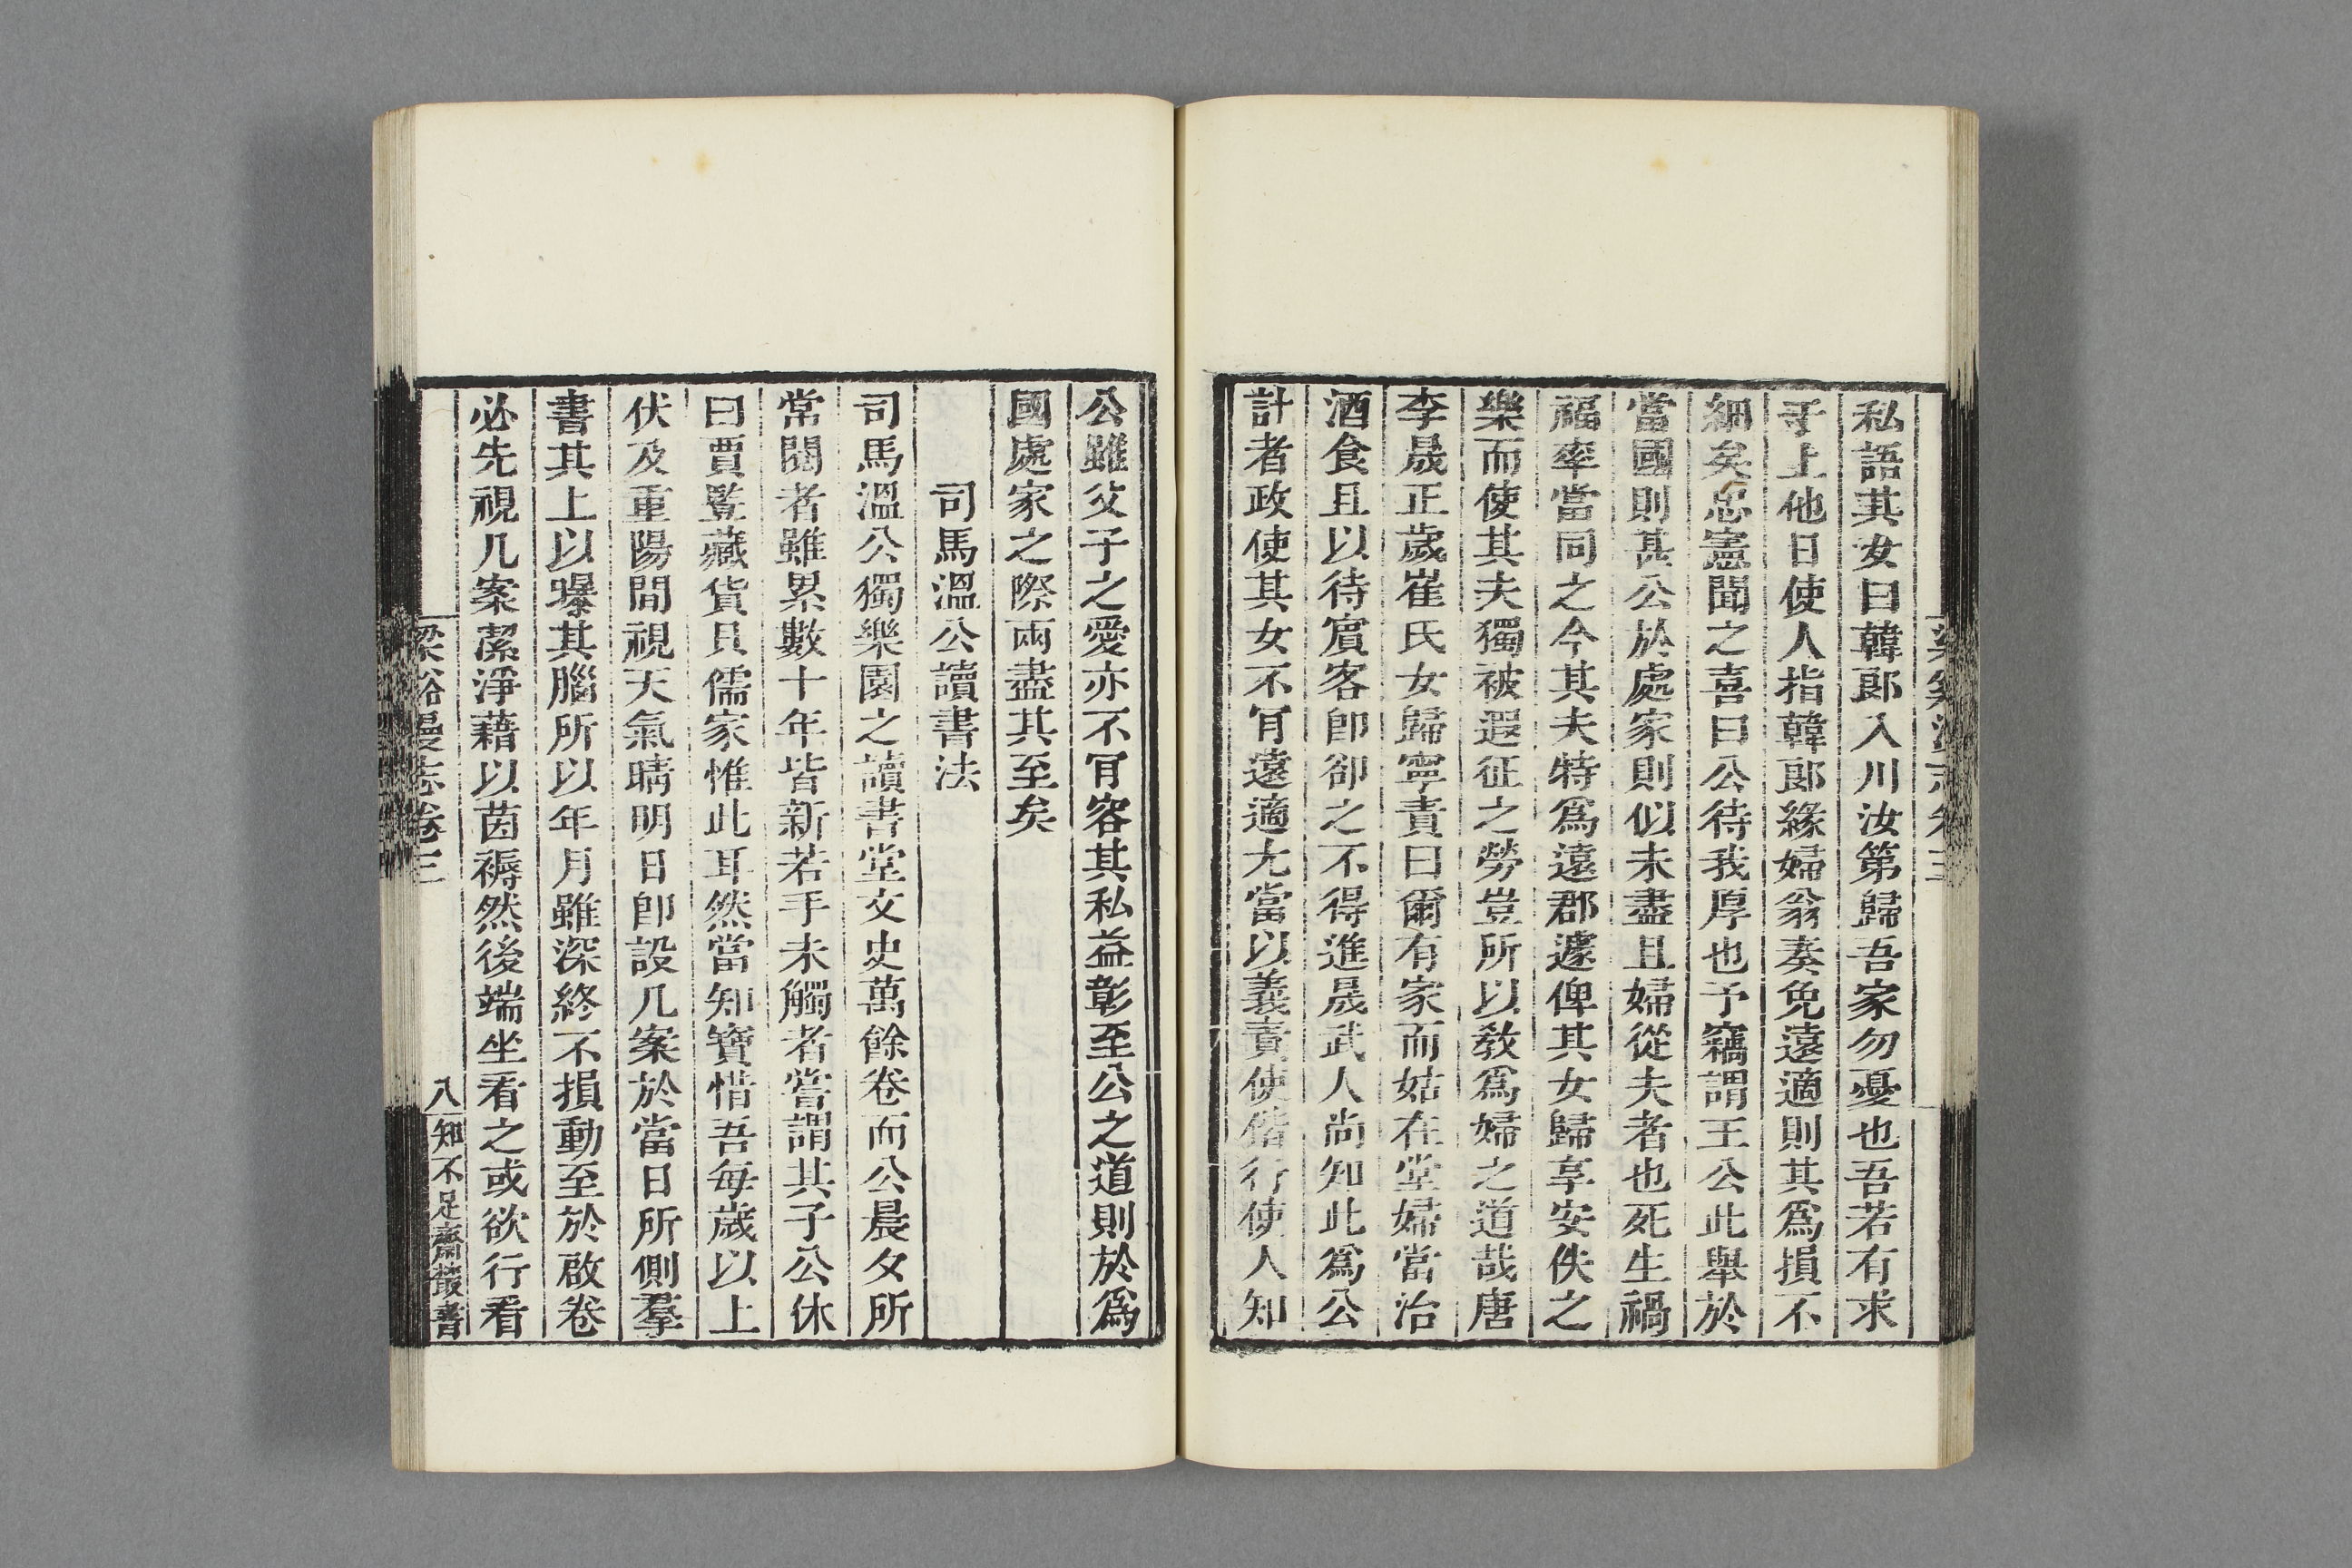 私語其女曰韓郎入川汝第歸吾家勿憂也吾若有求
于上他日使人指韓郎緣婦翁奏免遠適則其爲損不
細矣忠憲聞之喜曰公待我厚也予竊謂王公此舉於
當國則甚公於處家則似未盡且婦從夫者也死生禍
福率當同之今其夫特爲遠郡遽俾其女歸享安佚之
樂而使其夫獨被遐征之勞豈所以敎爲婦之道哉唐
李晟正歲崔氏女歸寧責曰爾有家而姑在堂婦當治
酒食且以待賓客卽卻之不得進晟武人尚知此爲公
計者政使其女不肎遠適尤當以義責使偕行使人知
公雖父子之愛亦不肎容其私益彰至公之道則於爲
國處家之際兩盡其至矣
司馬溫公讀書法
司馬溫公獨樂園之讀書堂文史萬餘卷而公晨夕所
常閱者雖累數十年皆新若手未觸者嘗謂其子公休
曰賈豎藏貨貝儒家惟此耳然當知寶惜吾每歲以上
伏及重陽間視天氣晴明日卽設几案於當日所側羣
書其上以曝其腦所以年月雖深終不損動至於啟卷
必先視几案潔淨藉以茵褥然後端坐看之或欲行看
梁谿漫志卷三
八
知不足齋叢書